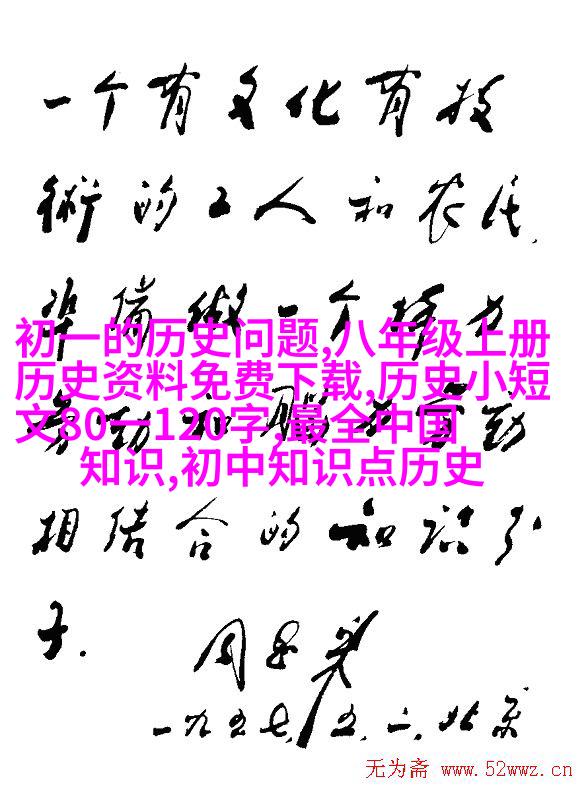 一个有文化有技
術的工人和农民,
準備做一个力
初一的历史问题,八年级上册
历史资料免费下载,历史小短
文80一120字,最全中国
知识,初中知识点历史
劳动和劳动
相结合的知识分
子.
周恩来
一九五七.五.一.北京
无为斋 www.52wwz.cn